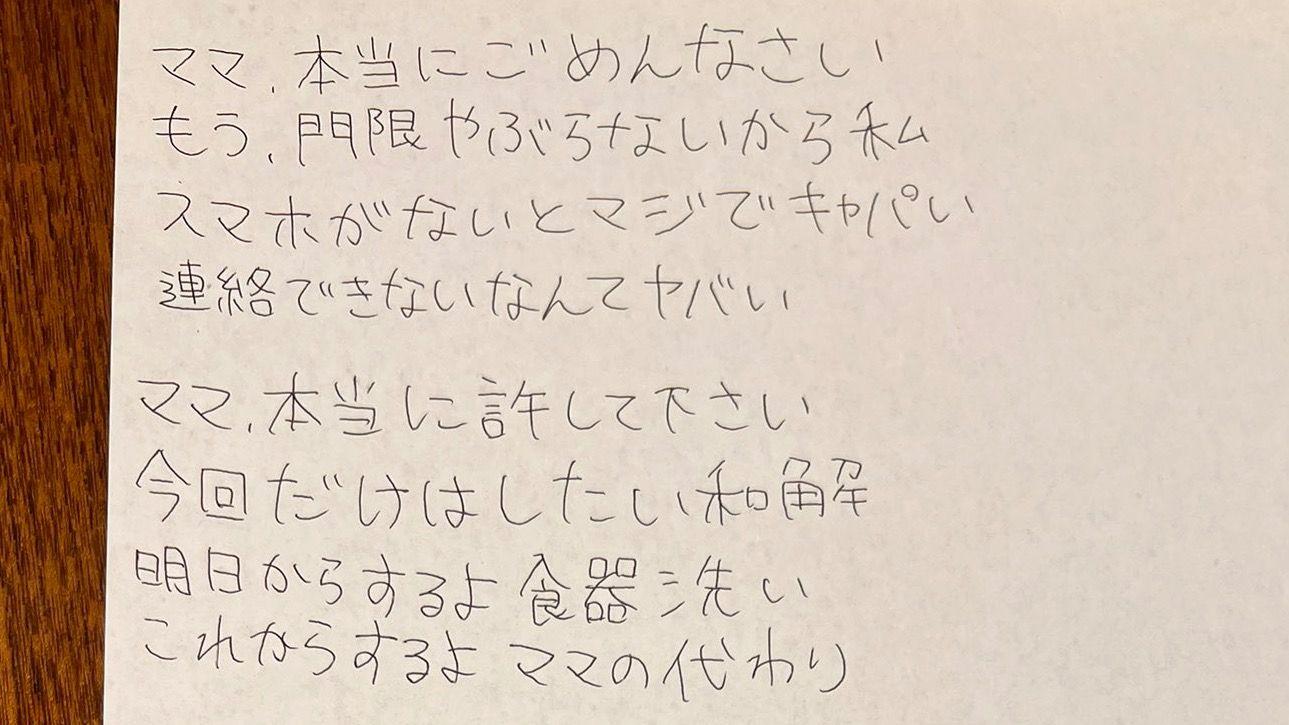 ママ、本当にごめんなさい
もう、門限やぶらないから私
スマホがないとマジでキャパい
連絡できないなんてヤバい
ママ、本当に許して下さい
今回だけはしたい和解
明日からするよ 食器洗い
これからするよ ママの代わり